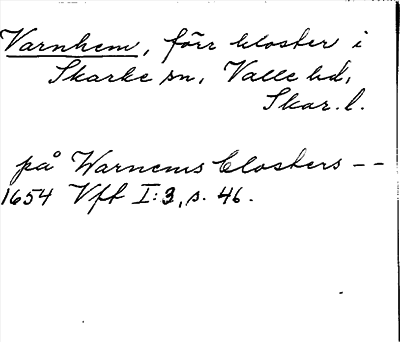 Varnhem, förr kloster i
Skarke sn, Valle hd,
Skar. l.
på Warnems Closters - -
1654 Vft I:3, s. 46.